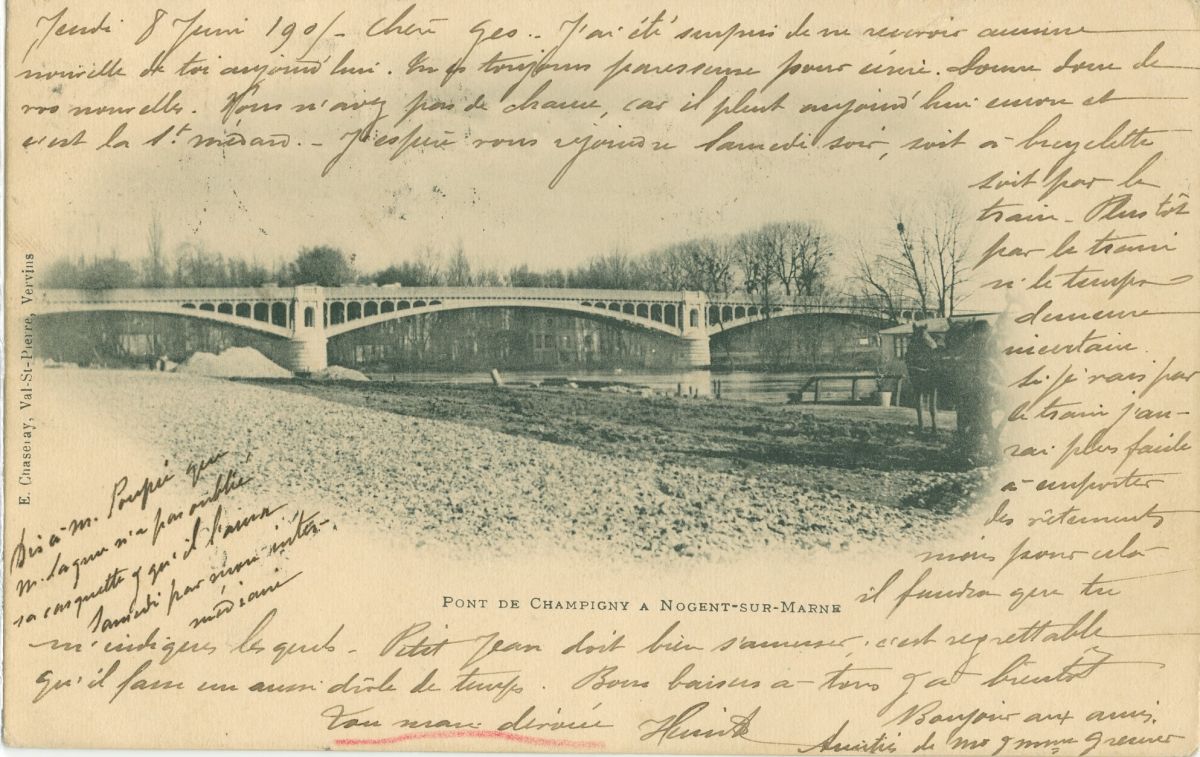 Jeudi 8 Juin 190/- Chère Geo.. J'ai été surpris de ne recevoir aucune
nouvelle de toi aujourd'hui. Tu es toujours paresseuse pour écrire. Donne donc de
vos nouvelles. Vous n'avez pas de chance, car il pleut aujourd'hui encore et
c'est la St. médard. - J'espère vous rejoindre Samedi soir, soit à bicyclette
soit par le
train - Plutôt
par le train
si le temps
demeure
incertain.
Si je vais par
le train j'au-
rai plus facile
à emporter
des vêtements
mais pour cela
il faudra que tu
m'indiques lesquels - Petit Jean doit bien s'amuser, c'est regrettable
qu'il fasse un aussi drôle de temps. Bons baisers à tous & à bientôt
Ton mari dévoué
Bonjour aux amis.
Amitiés de
Dis à M. Poupié que
M. Lagnn n'a pas oublié
sa casquette & qu'il l'aura
Samedi par mon inter-
médiaire
PONT DE CHAMPIGNY A NOGENT-SUR-MARNE
E. Chaseray, Val-St-Pierre, Vervins